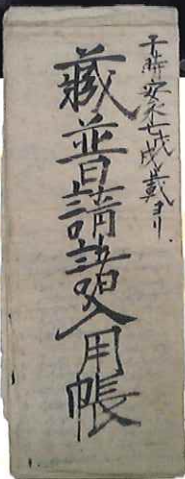 于時安永七戊戌歳ヨリ
藏普請諸入用帳